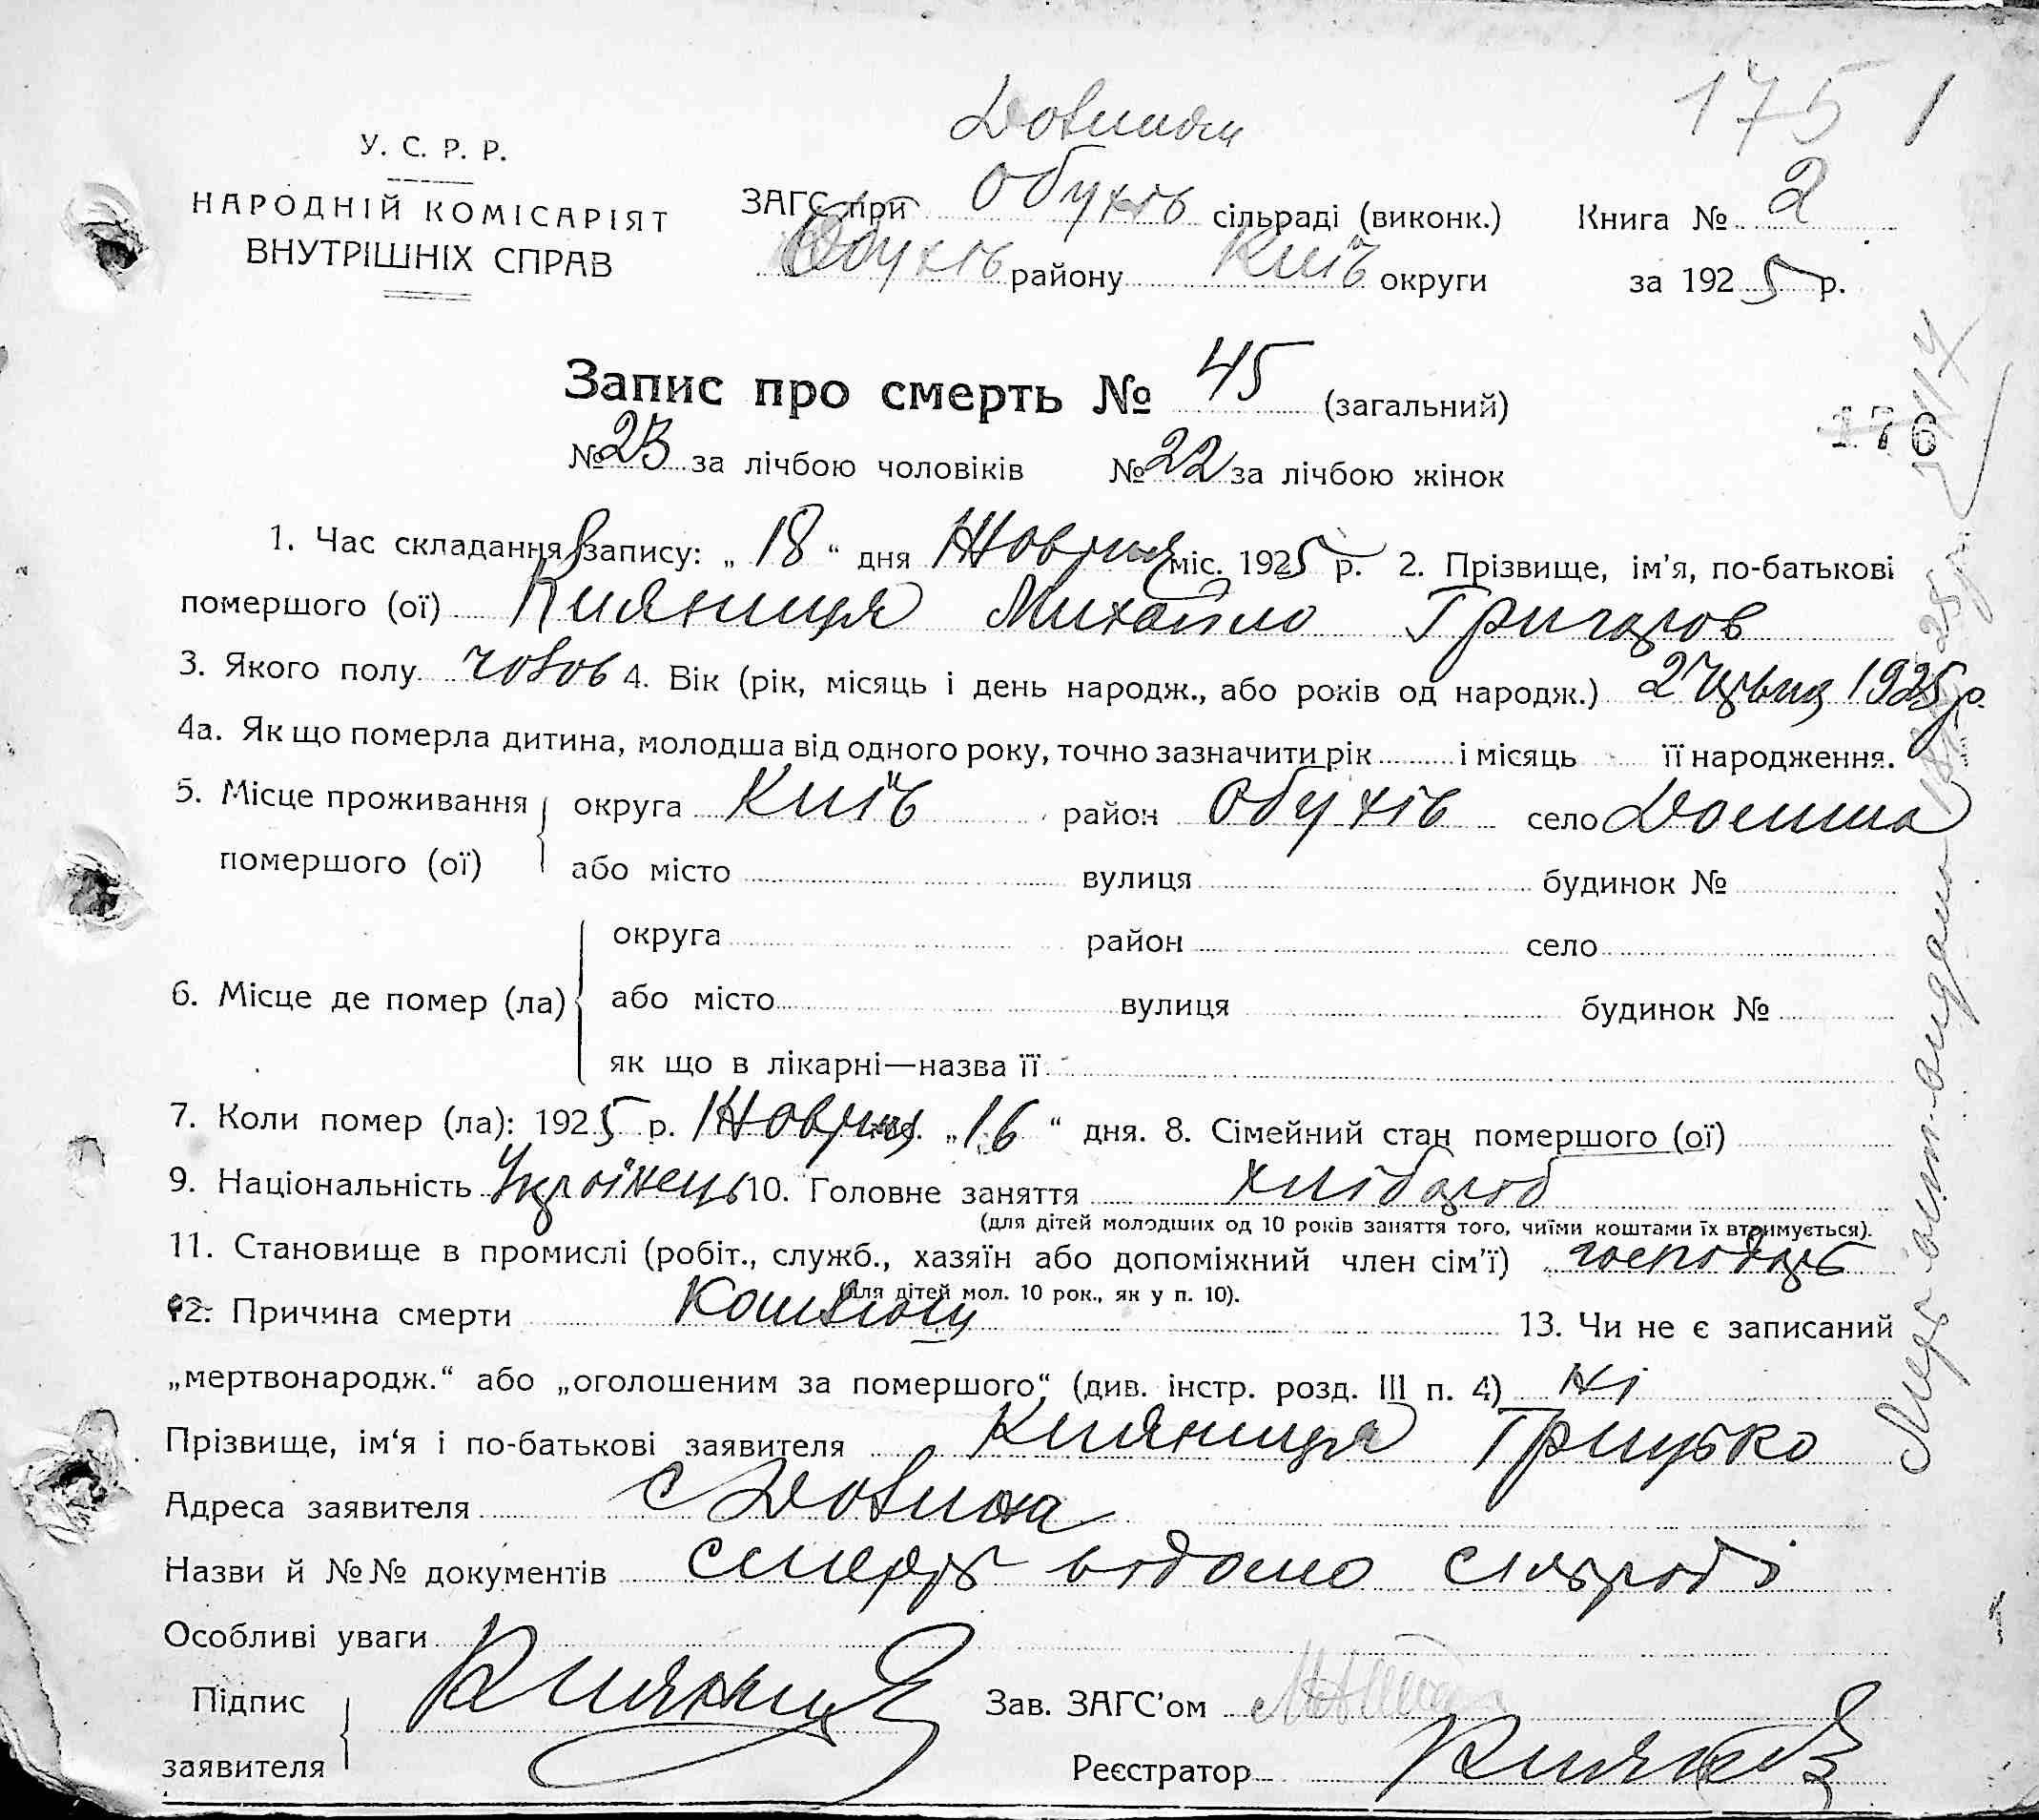 175 1
Долина
У. С. Р. Р.
НАРОДНІЙ КОМІСАРІЯТ
ВНУТРІШНІХ СПРАВ
ЗАГС при Обухів сільраді (виконк.) Книга № 2
Обухів району Київ округи за 1925 р.
Запис про смерть № 45 (загальний)
176
№ 23 за лічбою чоловіків № 22 за лічбою жінок
1. Час складання запису: „ 18 “ дня Жовтня міс. 1925 р. 2. Прізвище, ім’я, по-батькові
помершого (ої) Кияниця Михайло Григоров
3. Якого полу чолов 4. Вік (рік, місяць і день народж., або років од народж.) 1925 р.
4а. Як що померла дитина, молодша від одного року, точно зазначити рік і місяць її народження.
5. Місце проживання помершого (ої) округа Київ район Обухів село Долина
або місто вулиця будинок №
6. Місце де помер (ла) округа район село
або місто вулиця будинок №
як що в лікарні—назва її
7. Коли помер (ла): 1925 р. Жовтня „ 16 “ дня. 8. Сімейний стан помершого (ої)
9. Національність Українець 10. Головне заняття хлібороб
(для дітей молодших од 10 років заняття того, чиїми коштами їх втримується).
11. Становище в промислі (робіт., служб., хазяїн або допоміжний член сім’ї) господарь
(для дітей мол. 10 рок., як у п. 10).
12. Причина смерти Кашлюк 13. Чи не є записаний
„мертвонародж.“ або „оголошеним за помершого“ (див. інстр. розд. III п. 4) Ні
Прізвище, ім‘я і по-батькові заявителя Кияниця Грицько
Адреса заявителя с Долина
Назви й №№ документів смерть відомо сільраді
Особливі уваги
Підпис заявителя Кияниця Зав. ЗАГС’ом
Реєстратор